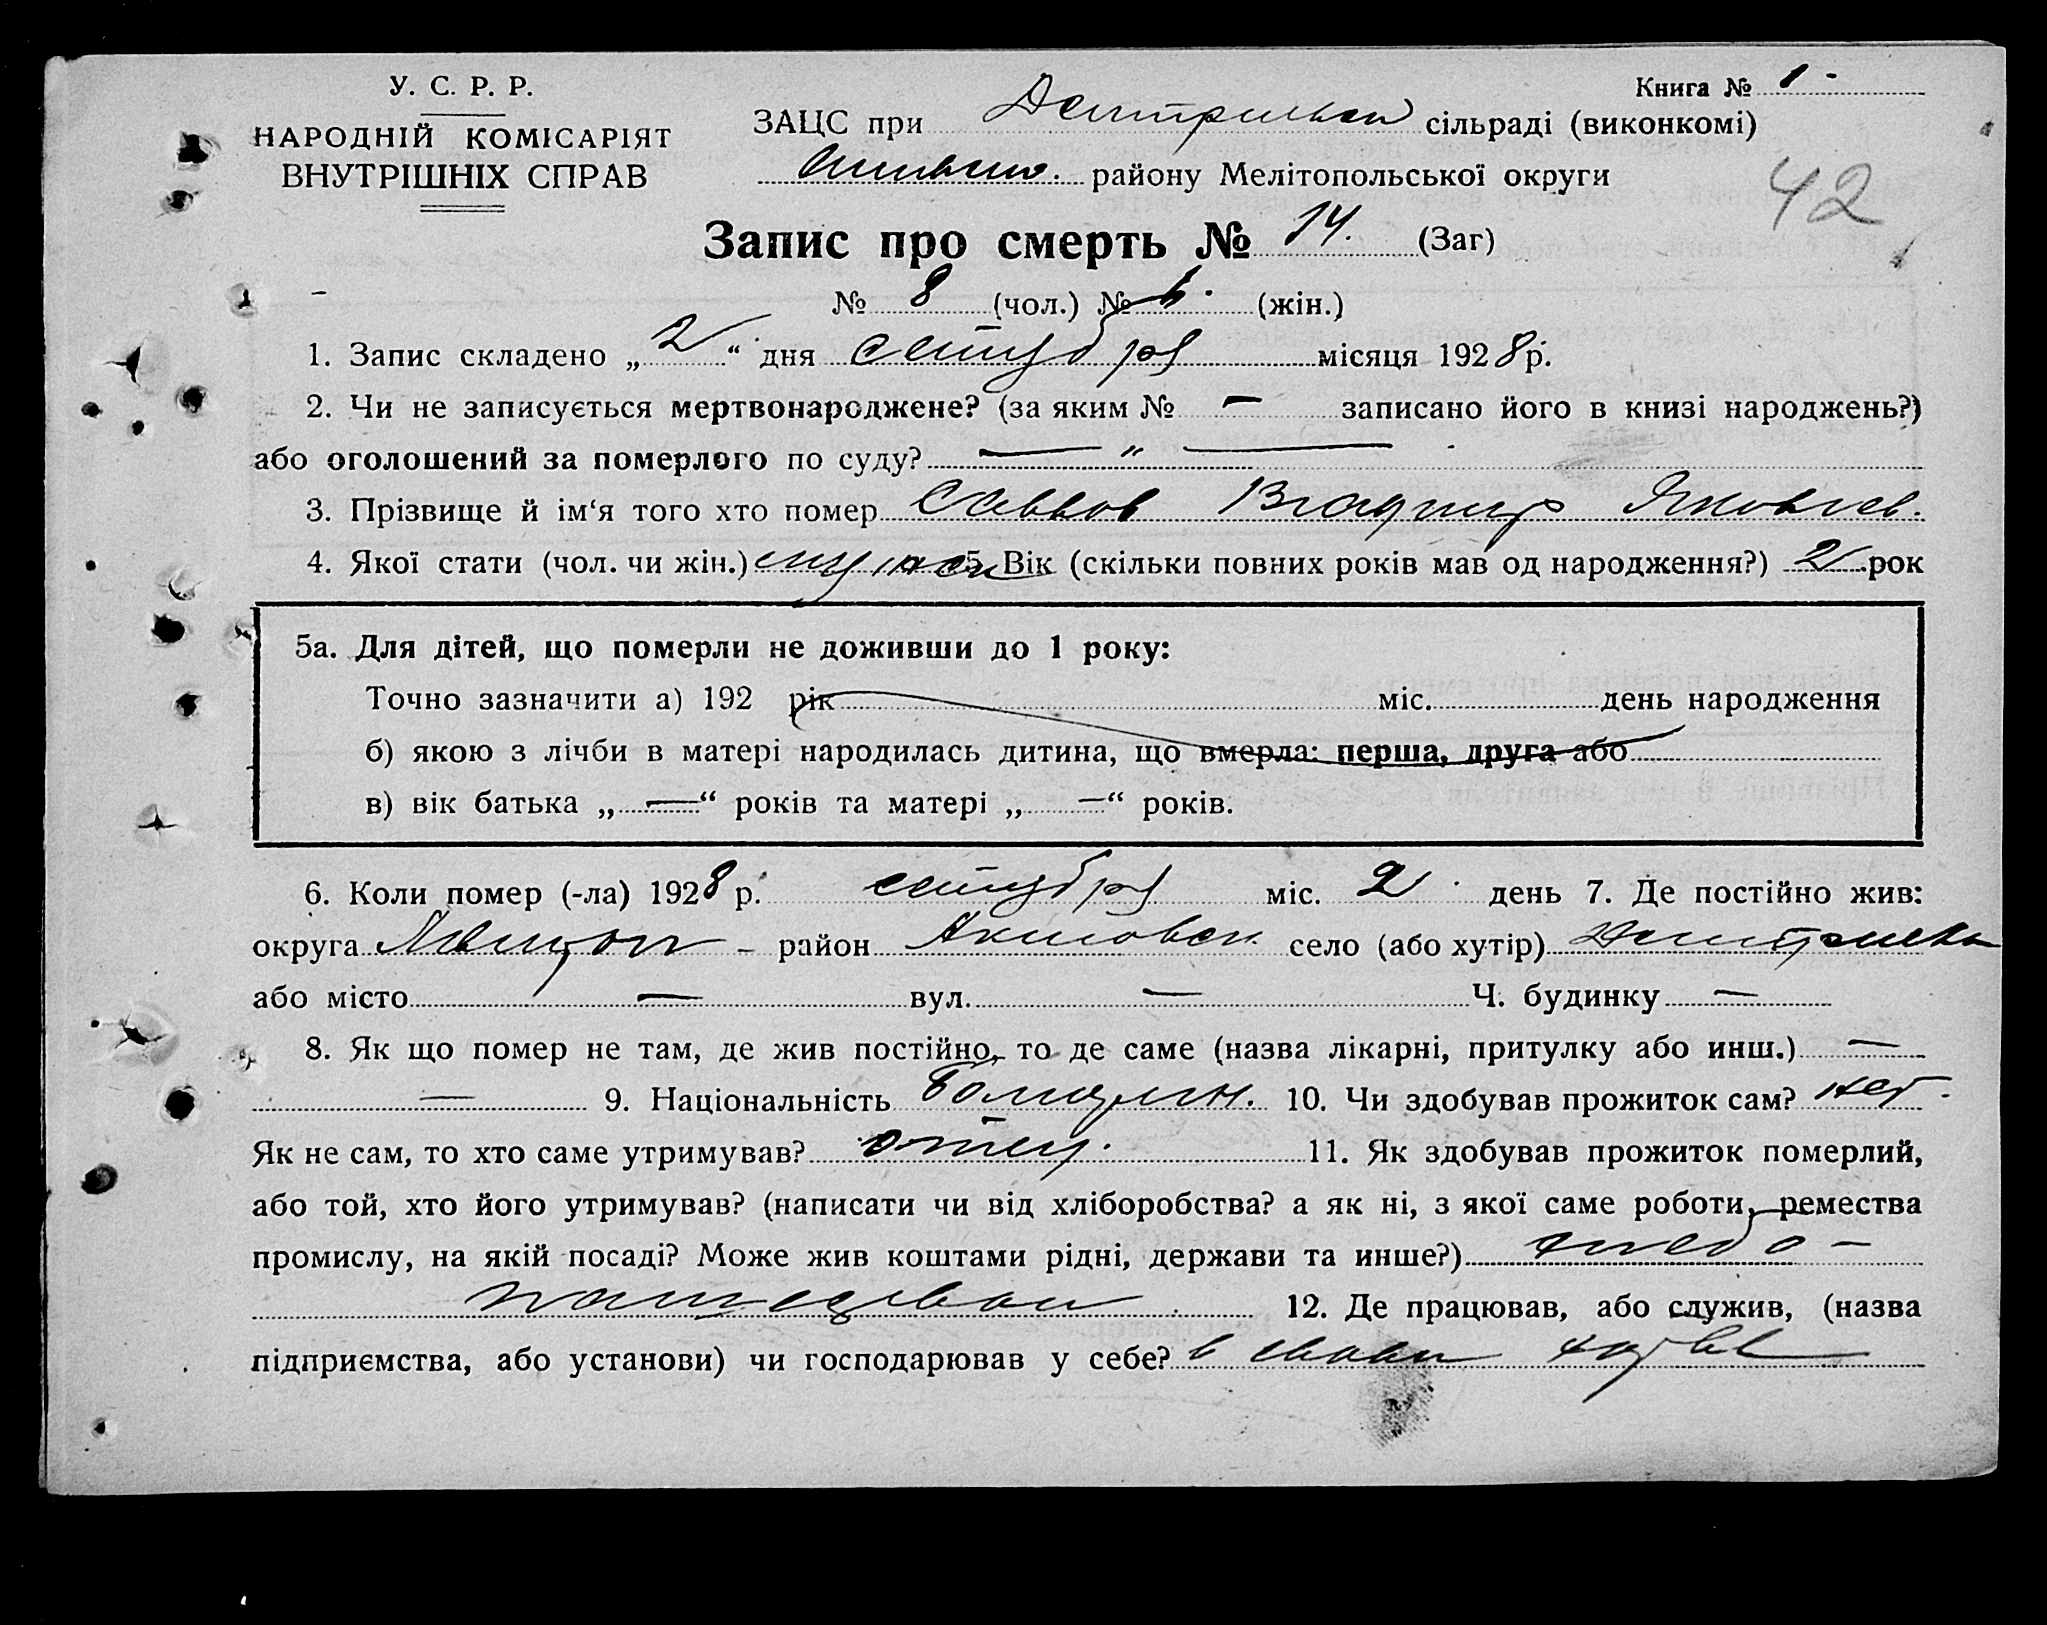 У. С. Р. Р.
Книга № 1 -
НАРОДНІЙ КОМІСАРІЯТ
ВНУТРІШНІХ СПРАВ
ЗАЦС при сільраді (виконкомі)
району Мелітопольської округи
42
Запис про смерть № 14. (Заг)
№ 8 (чол.) № (жін.)
1. Запис складено „ 2 “ дня сентября місяця 1928 р.
2. Чи не записується мертвонароджене? (за яким № — записано його в книзі народжень?)
або оголошений за померлого по суду? — „ —
3. Прізвище й ім‘я того хто помер Саввов Владимир Яковлев.
4. Якої стати (чол. чи жін.) мужск 5. Вік (скільки повних років мав од народження?) 2 рок
5а. Для дітей, що померли не доживши до 1 року:
Точно зазначити а) 192 рік міс. день народження
б) якою з лічби в матері народилась дитина, що вмерла: перша, друга або
в) вік батька „ — “ років та матері „ — “ років.
6. Коли помер (-ла) 1928 р. сентября міс. 2 день 7. Де постійно жив:
округа район Акимовск. село (або хутір)
або місто — вул. — Ч. будинку —
8. Як що помер не там, де жив постійно, то де саме (назва лікарні, притулку або инш.) —
— 9. Національність 10. Чи здобував прожиток сам? нет.
Як не сам, то хто саме утримував? отец. 11. Як здобував прожиток померлий,
або той, хто його утримував? (написати чи від хліборобства? а як ні, з якої саме роботи, ремества
промислу, на якій посаді? Може жив коштами рідні, держави та инше?) хлебо-
12. Де працював, або служив, (назва
підприємства, або установи) чи господарював у себе? в своем